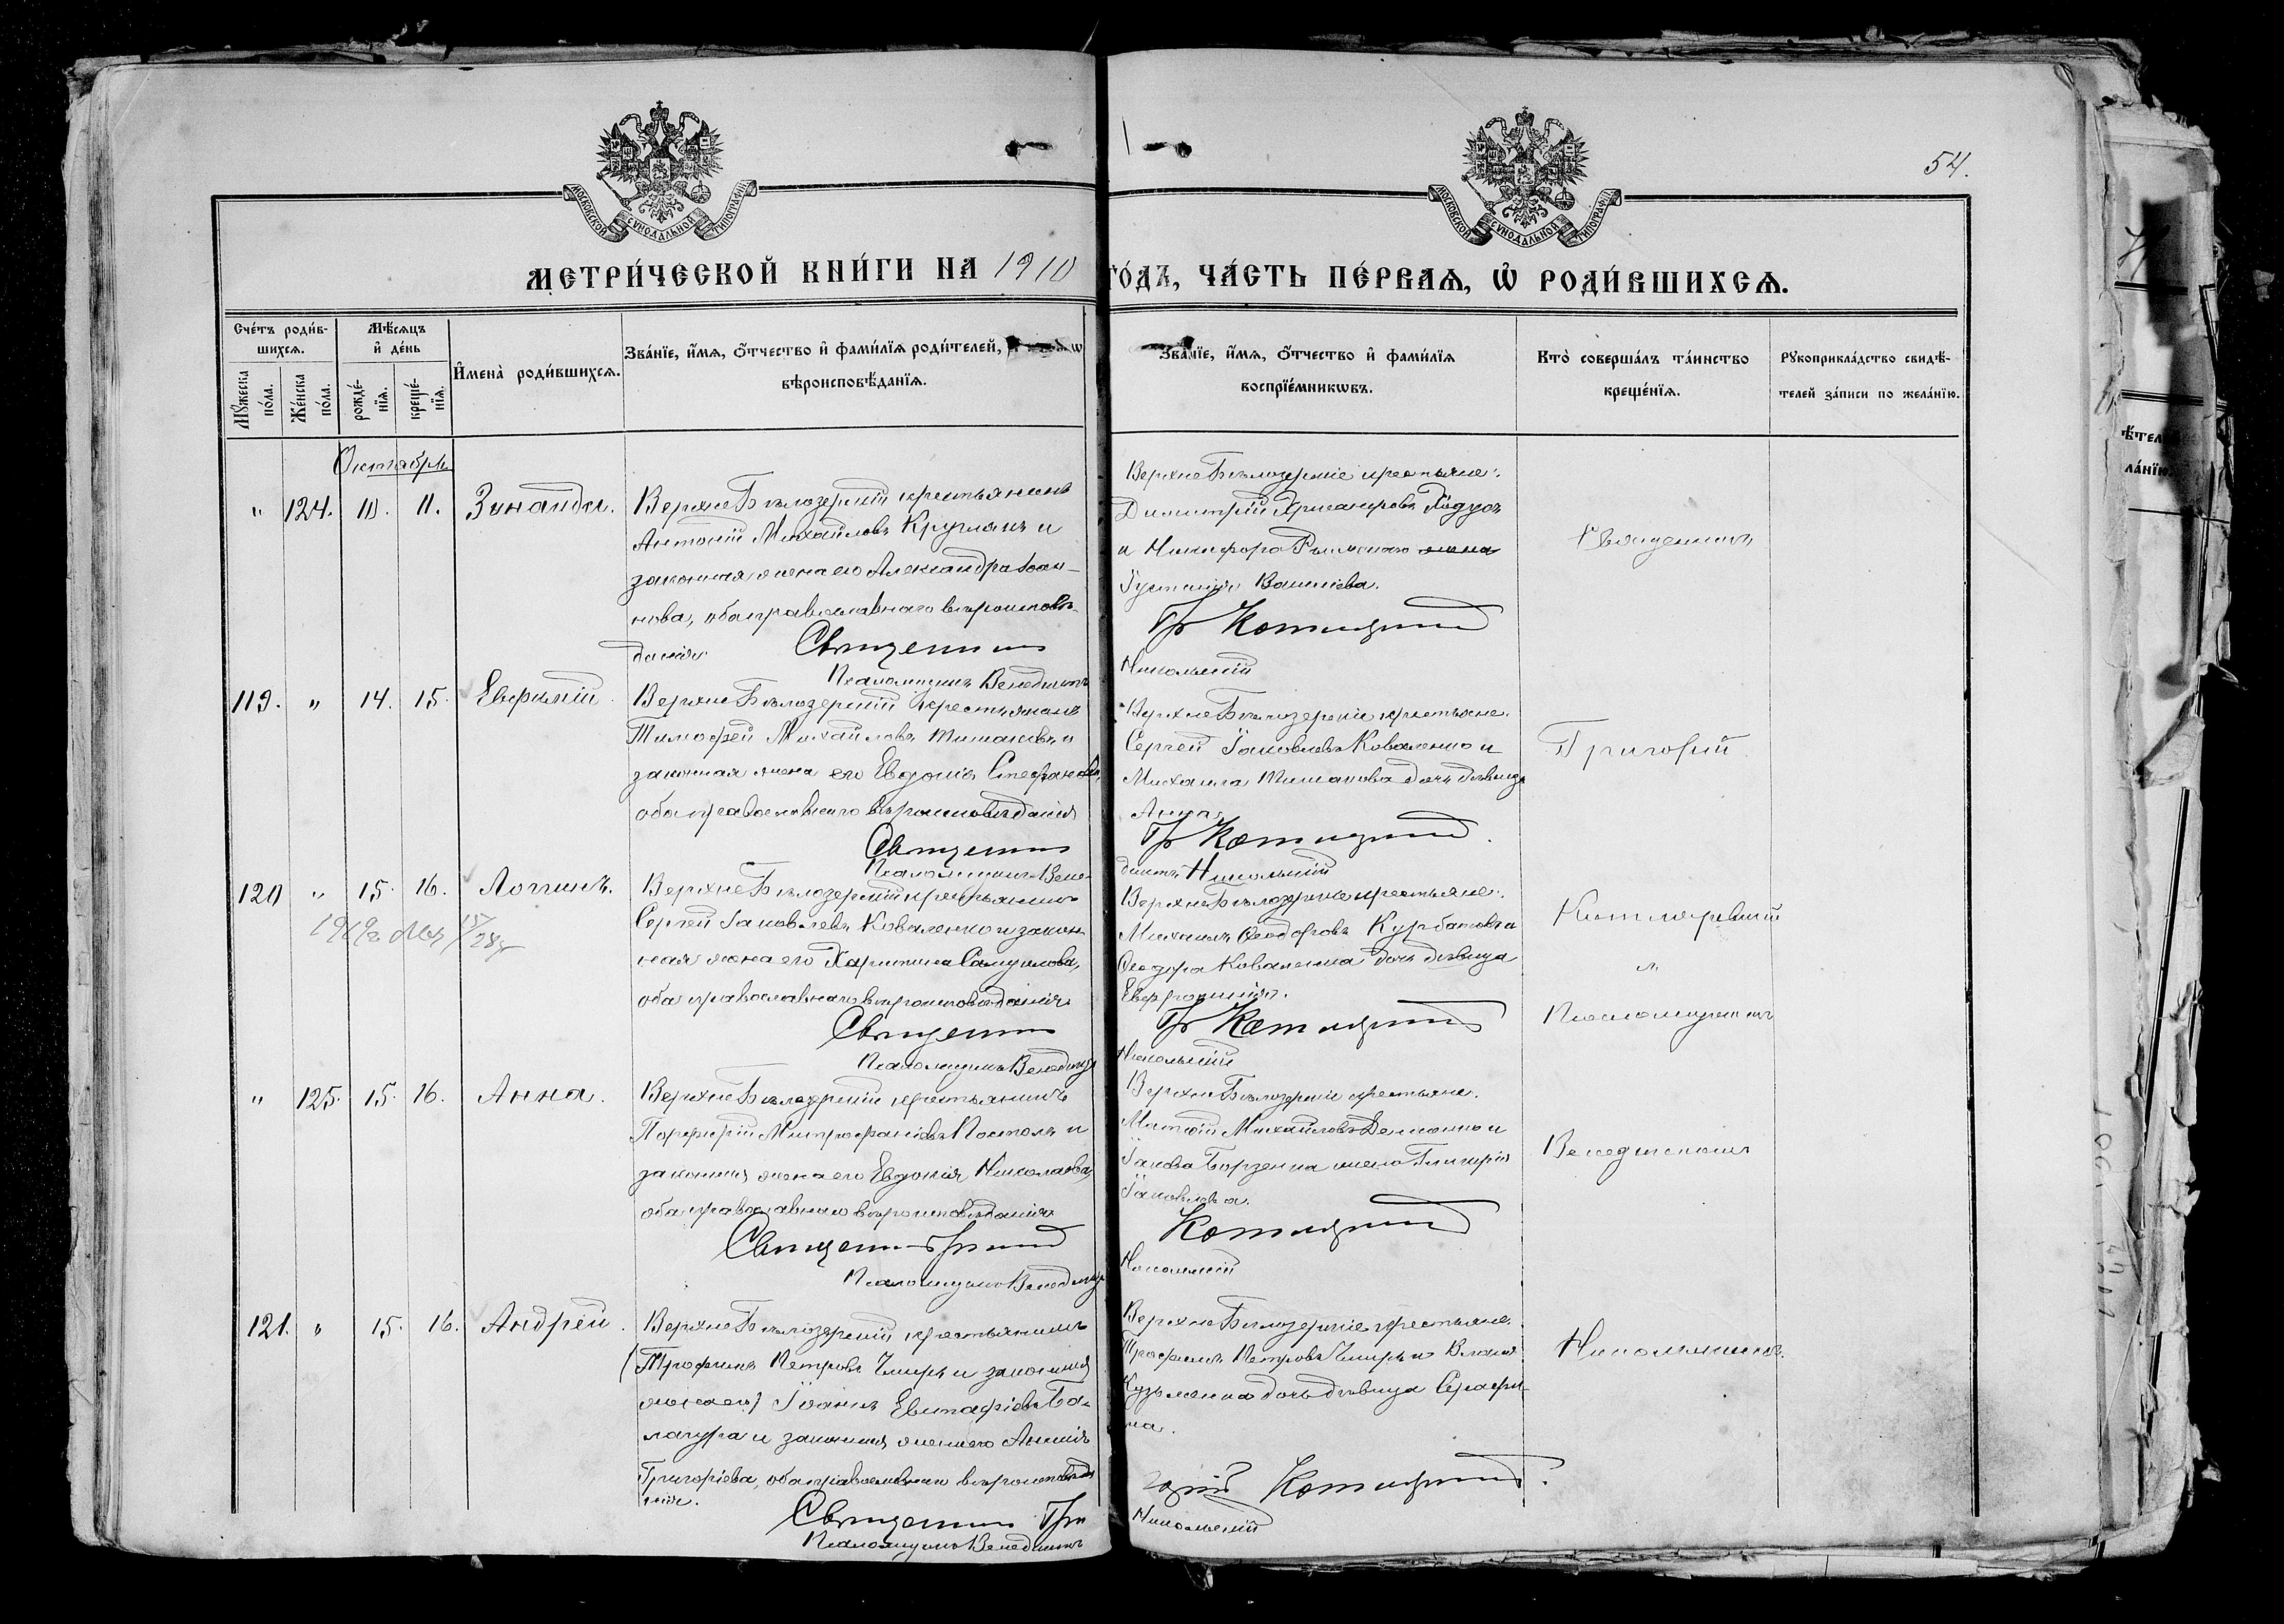 54.
МОСКОВСКОЙ СѴНОДАЛЬНОЙ ТИПОГРАФІИ
МОСКОВСКОЙ СѴНОДАЛЬНОЙ ТИПОГРАФІИ
МЕТРИ́ЧЕСКОЙ КНИ́ГИ НА 1910
ГО́ДЪ, ЧА́СТЬ ПЕ́РВАѦ, Ѡ҆ РОДИ́ВШИХСѦ.
Сче́тъ роди́в-
шихсѧ.
Мѣ́сѧцъ
и҆ де́нь
Мꙋ́жеска по́ла.
Же́нска по́ла.
рожде́-
нїѧ.
креще́-
нїѧ.
И҆мена̀ роди́вшихсѧ.
Зва́нїе, и҆́мѧ, ѻ҆́тчество и҆ фами́лїѧ роди́телей,
вѣроисповѣ́данїѧ.
Зва́нїе, и҆́мѧ, ѻ҆́тчество и҆ фами́лїѧ
воспрїе́мникѡвъ.
Кто̀ соверша́лъ та́инство
креще́нїѧ.
Рꙋкоприкла́дство свидѣ́-
телей за́писи по жела́нїю.
Октябрь
" 124. 10. 11. Зинаида.
Верхне Бѣлозерскій крестьянинъ
Антоній Михайловъ Круглякъ и
законная жена его Александра Іоан-
нова, оба православнаго вѣроисповѣ-
данія.
Священникъ
Псаломщикъ Венедиктъ
Верхне Бѣлозерскіе крестьяне:
Димитрій
и Никифора жена
Васильева.
Гр Котляревскій
Никольскій
Священникъ
119. " 14. 15. Евфимій.
Верхне Бѣлозерскій крестьянинъ
Тимофей Михайловъ Тимаковъ и
законная жена его Евдокія Стефанова,
оба православнаго вѣроисповѣданія
Священникъ
Псаломщикъ Вене-
Верхне Бѣлозерскіе крестьяне.
Сергей Іаковлевъ Коваленко и
Михаила Тимакова дочь дѣвица
Анна.
Гр Котляревскій.
диктъ Никольскій
Григорій
120 " 15. 16. Логгинъ.
Верхне Бѣлозерскій крестьянинъ
Сергей Іаковлевъ Коваленко и закон-
ная жена его Харитина Самуилова,
оба православнаго вѣроисповѣданія
Священникъ
Псаломщикъ Венедиктъ
Верхне Бѣлозерскіе крестьяне:
Михаилъ Ѳеодоровъ Курбатовъ и
Ѳеодора Коваленка дочь дѣвица
Евфросинія.
Гр Котляревскій
Никольскій
Котляревскій
и
Псаломщикъ
" 125. 15. 16. Анна.
Верхне Бѣлозерскій крестьянинъ
Порфирій Митрофановъ Постолъ и
законная жена его Евдокія Николаева,
оба православнаго вѣроисповѣданія
Священникъ Григорій
Псаломщикъ Венедиктъ
Верхне Бѣлозерскіе крестьяне.
Михайловъ и
Іакова Борзенка жена Гликерія
Іаковлева.
Котляревскій
Никольскій
Венедиктомъ
121. " 15. 16. Андрей.
Верхне Бѣлозерскій крестьянинъ
(Трофимъ Петровъ Чмирь и законная
жена его) Іоаннъ Евстафіевъ Ба-
лагура и законная жена его Анна
Григоріева, оба православнаго вѣроисповѣда-
нія.
Священникъ Гри
Псаломщикъ Венедиктъ
Верхне Бѣлозерскіе крестьяне.
Трофимъ Петровъ Чмирь и Власія
Кузьменка дочь дѣвица Серафи-
ма.
горій Котляревскій.
Никольскій
Никольскимъ.